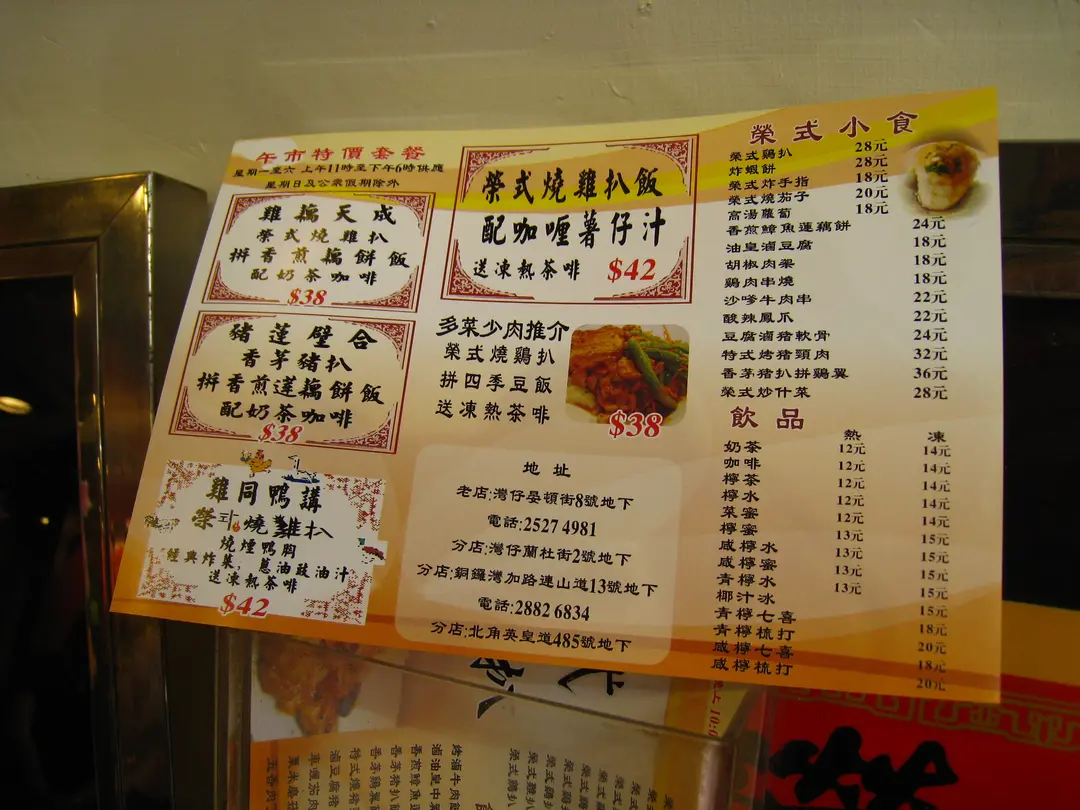 午市特價套餐
星期一至六 上午11時至下午6時供應
星期日及公眾假期除外
雞藕天成
榮式燒雞扒
拼香煎藕餅飯
配奶茶咖啡
$38
豬蓮璧合
香茅豬扒
拼香煎蓮藕餅飯
配奶茶咖啡
$38
雞同鴨講
榮式燒雞扒
燒煙鴨胸
經典炸菜,蔥油豉油汁
送凍熱茶啡
$42
榮式燒雞扒飯
配咖喱薯仔汁
送凍熱茶啡 $42
多菜少肉推介
榮式燒鷄扒
拼四季豆飯
送凍熱茶啡
$38
地址
老店:灣仔晏頓街8號地下
電話:2527 4981
分店:灣仔蘭杜街2號地下
分店:銅鑼灣加路連山道13號地下
電話:2882 6834
分店:北角英皇道485號地下
榮式小食
榮式鷄扒 28元
炸蝦餅 28元
榮式炸手指 18元
榮式燒茄子 20元
高湯蘿蔔 18元
香煎鱆魚蓮藕餅 24元
油皇滷豆腐 18元
胡椒肉槳 18元
鷄肉串燒 18元
沙嗲牛肉串 22元
酸辣鳳爪 22元
豆腐滷猪軟骨 24元
特式烤猪頸肉 32元
香茅猪扒拼鷄翼 36元
榮式炒什菜 28元
飲品 熱 凍
奶茶 12元 14元
咖啡 12元 14元
檸茶 12元 14元
檸水 12元 14元
菜蜜 12元 14元
檸蜜 13元 15元
咸檸水 13元 15元
咸檸蜜 13元 15元
青檸水 13元 15元
椰汁冰 15元
青檸七喜 18元
青檸梳打 20元
咸檸七喜 18元
咸檸梳打 20元